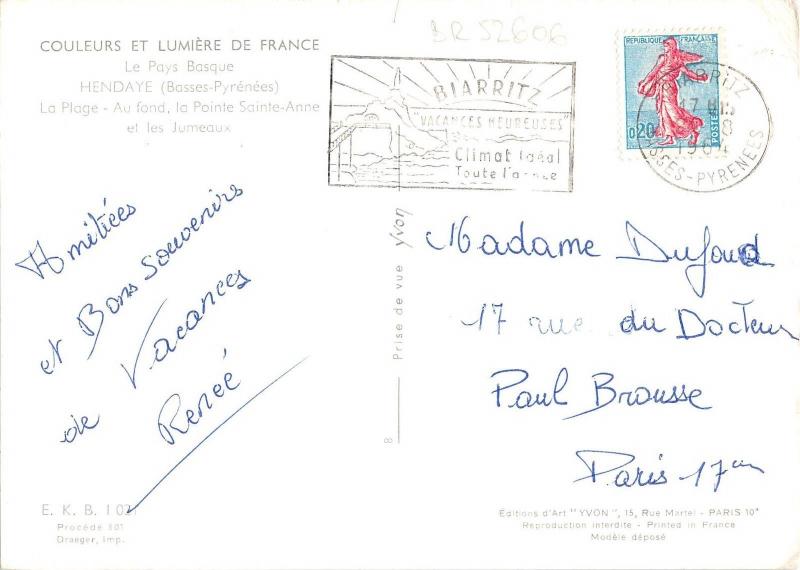 BR 52606
COULEURS ET LUMIÈRE DE FRANCE
Le Pays Basque
HENDAYE (Basses-Pyrénées)
La Plage - Au fond, la Pointe Sainte-Anne
et les Jumeaux
BIARRITZ
"VACANCES HEUREUSES"
Climat Idéal
Toute l'année
REPUBLIQUE FRANÇAISE
0,20
POSTES
BIARRITZ
17 H
8
BASSES-PYRENEES
Amitiées
et Bons souvenirs
de Vacances
Renée
Prise de vue yvon
8
Madame Dufoud
17 rue du Docteur
Paul Brousse
Paris 17em
E. K. B. I 02
Procédé 301
Draeger, Imp.
Éditions d'Art "YVON", 15, Rue Martel - PARIS 10e
Reproduction interdite - Printed in France
Modèle déposé